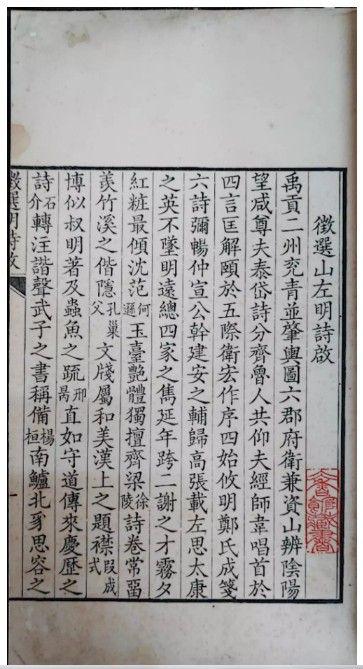 徵選山左明詩啟
禹貢二州兖青並肇輿圖六郡府衛兼資山辨陰陽
望咸尊夫泰岱詩分齊魯人共仰夫經師韋唱首於
四言匡解頤於五際衛宏作序四始攸明鄭氏成箋
六詩彌暢仲宣公幹建安之輔歸高張載左思太康
之英不墜明遠總四家之雋延年跨二謝之才霧夕
紅粧最傾沈范何遜玉臺艷體獨擅齊梁徐陵詩卷常畱
羨竹溪之偕隱孔巢父文牋屬和美漢上之題襟段成式
博似叔明著及蟲魚之疏邢昺直如守道傳來慶歷之
詩石介轉注諧聲武子之書稱備楊桓南鱸北豸思容之
徵選明詩啟
一